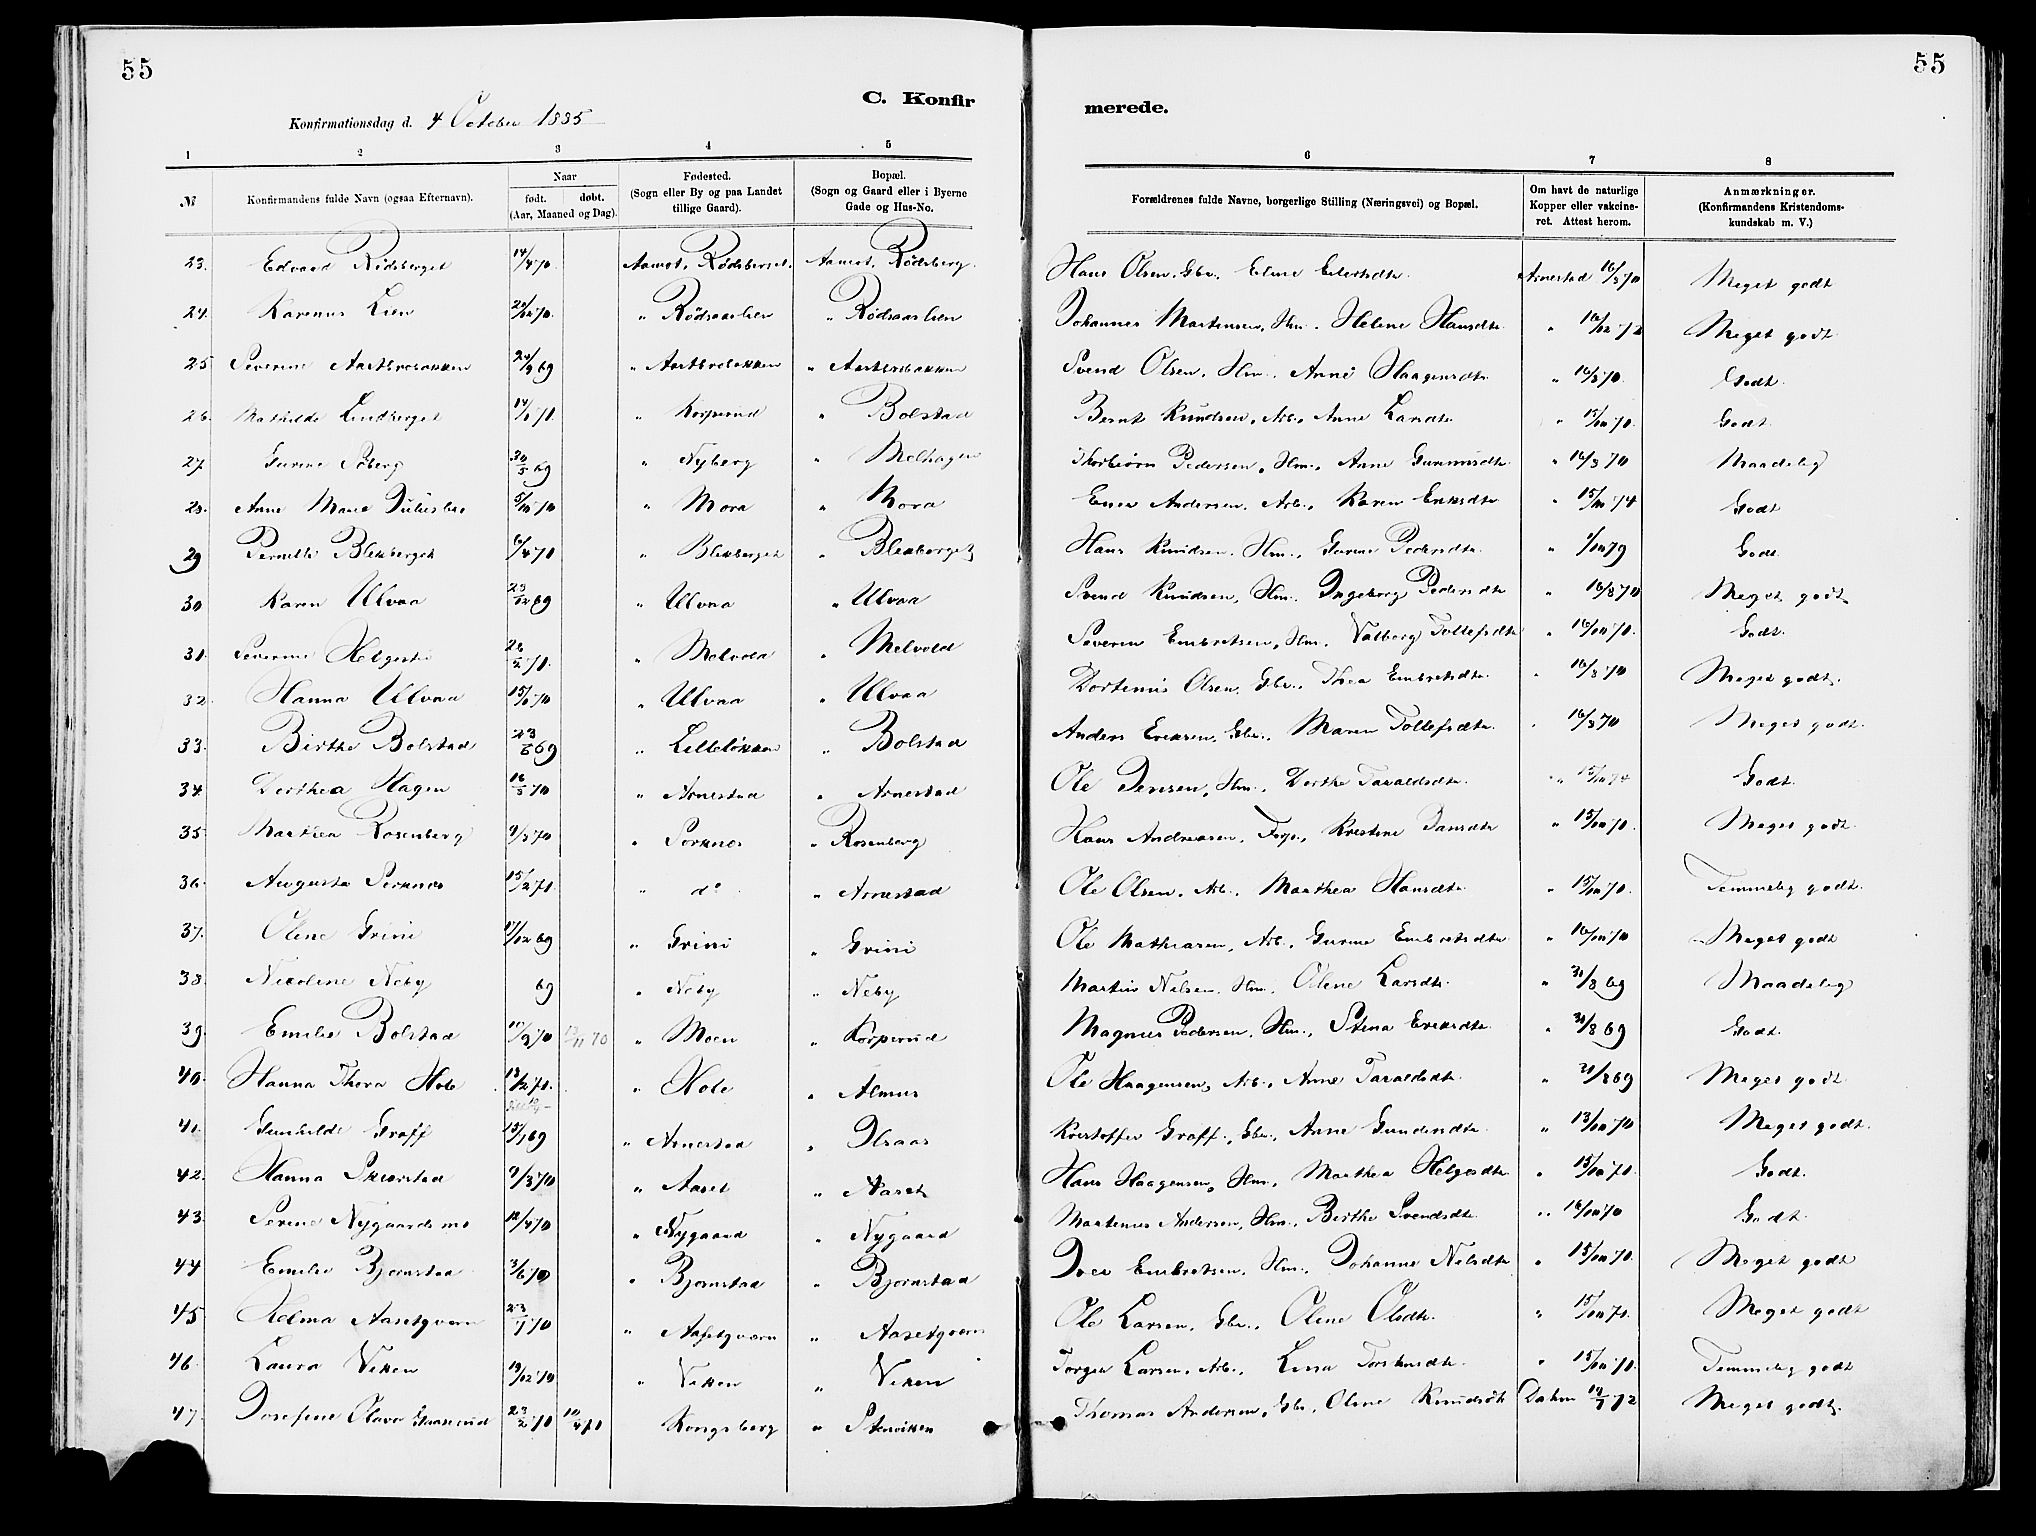 55
55
C. Konfirmerede.
Konfirmationsdag d. 4 October 1885
1 2 3 4 5 6 7 8
№ Konfirmandens fulde Navn (ogsaa Efternavn). Naar født. døbt. (Aar, Maaned og Dag). Fødested. (Sogn eller By og paa Landet tillige Gaard). Bopæl. (Sogn og Gaard eller i Byerne Gade og Hus-No. Forældrenes fulde Navne, borgerlige Stilling (Næringsvei) og Bopæl. Om havt de naturlige Kopper eller vakcineret. Attest herom. Anmærkninger. (Konfirmandens Kristendomskundskab m. V.)
23. Edvard Rødsberget 14/4 70. Aamot, Rødsberget. Aamot, Rødsberg. Hans Olsen, Gbr., Eline Eilertsdtr. Arnestad 16/8 70 Meget godt
24. Karenus Lien 70. " Rødsaaslien " Rødsaaslien Johannes Martinsen, Hm., Helene Hansdtr. " 16/12 72 Meget godt
25 Severine Aastbrobakken 24/9 69 " Aastbrobakken " Aastbrobakken Svend Olsen, Hm., Anne Haagensdtr. " 16/8 70. Godt.
26. Mathilde Lindberget 70. " Korperud " Bolstad Bernt Knudsen, Arb., Anne Larsdtr. " 15/10 70. Godt.
27. Gurine Søberg 20/5 69 " Nyberg " Melhagen Thorbiørn Pedersen, Hm., Anne Gunnersdtr. " 16/8 70 Maadelig
28. Anne Marie 5/10 70 " Mora " Mora Andersen, Arb., Karen Eriksdtr. " 15/10 74 Godt
29 Pernille Blekberget 6/4 70 " Blekberget " Blekberget Hans Knudsen, Hm., Gurine Pedersdtr. " 1/10 79 Godt.
30 Karen Ulvaa 23/12 69 " Ulvaa " Ulvaa Svend Knudsen, Hm., Ingeborg Pedersdtr " 16/8 70 Meget godt.
31. Severine 70. " Melvold " Melvold Severin Embretsen, Hm., Valborg Tollefsdtr " 16/10 70. Godt.
32. Hanna Ulvaa 70 " Ulvaa " Ulvaa Olsen, Gbr., Thea Embretsdtr. " 16/8 70 Meget godt.
33. Birthe Bolstad 69 " Lilleløkken " Bolstad Anders Eriksen, Gbr., Maren Tollefsdtr. " 16/8 70 Meget godt.
34. Dorthea Hagen 70 " Arnestad " Arnestad Ole Jensen, Hm., Dorthe Taraldsdtr. " 15/10 74 Godt.
35. Marthea Rosenberg 9/3 70 " Sorknes " Rosenberg Hans Andreasen, Forp., Kristine Jansdtr " 15/10 70. Meget godt.
36. Augusta Sorknes 15/2 70. " do " Arnestad Ole Olsen, Arb., Marthea Hansdtr. " 15/10 70. Temmelig godt.
37. Oline Grini 17/12 69 " Grini " Grini Ole Mathiasen, Arb., Gurine Embretsdtr " 16/10 70 Meget godt
38. Nikoline Neby 69 " Neby " Neby Martin Nilsen, Hm., Olene Larsdtr. " 31/8 69 Maadelig
39. Emilie Bolstad 70 13/11 70 " Moen " Korperud Magnus Pedersen, Hm., Stina Eriksdtr. " 31/8 69 Godt.
40. Hanna Thora Hole 13/2 70. " Hole " Almus Ole Haagensen, Arb., Anne Taraldsdtr. " 31/8 69 Meget godt.
41. Gunhilde Graff 15/1 69 " Arnestad " Ilsaas Kristoffer Graff, Gbr., Anne Gundersdtr. " 13/10 70 Meget godt.
42. Hanna Skjærstad 9/3 70 " Aaset " Aaset Hans Haagensen, Hm., Marthea Helgesdtr " 15/10 70. Godt.
43. Serine Nygaardsmo 12/4 70 " Nygaard " Nygaard Martinus Andersen, Hm., Birthe Svendsdtr. " 16/10 70 Godt.
44 Emilie Bjørnstad 3/6 70 " Bjørnstad " Bjørnstad Iver Embretsen, Hm., Johanne Nilsdtr " 15/10 70. Meget godt
45 Helma Aasetqværn 23/7 70 " Aasetqværn " Aasetqværn Ole Larsen, Gbr., Oline Olsdtr. " 15/10 70. Meget godt
46. Laura Viken 19/12 70 " Viken " Viken Torger Larsen, Arb., Lisa " 15/10 70. Temmelig godt
47. Josefine Olava 23/2 70 10/4 70 Kongsberg " Stenviken Thomas Andersen, Gbr., Oline Knudsdtr 72 Meget godt.